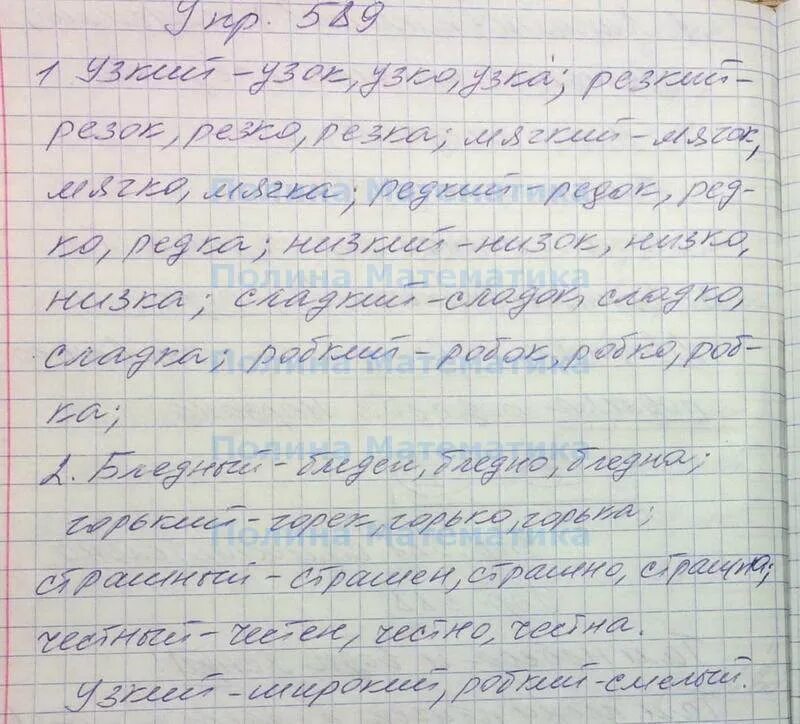 Упр. 589
1 Узкий - узок, узко, узка; резкий -
резок, резко, резка; мягкий - мягок,
мягко, мягка; редкий - редок, ред-
ко, редка; низкий - низок, низко,
низка; сладкий - сладок, сладко,
сладка; робкий - робок, робко, роб-
ка;
2. Бледный - бледен, бледно, бледна;
горький - горек, горько, горька;
страшный - страшен, страшно, страшна;
честный - честен, честно, честна.
Узкий - широкий, робкий - смелый.
Полина Математика
Полина Математика
Полина Математика
Полина Математика
Полина Математика
Полина Математика